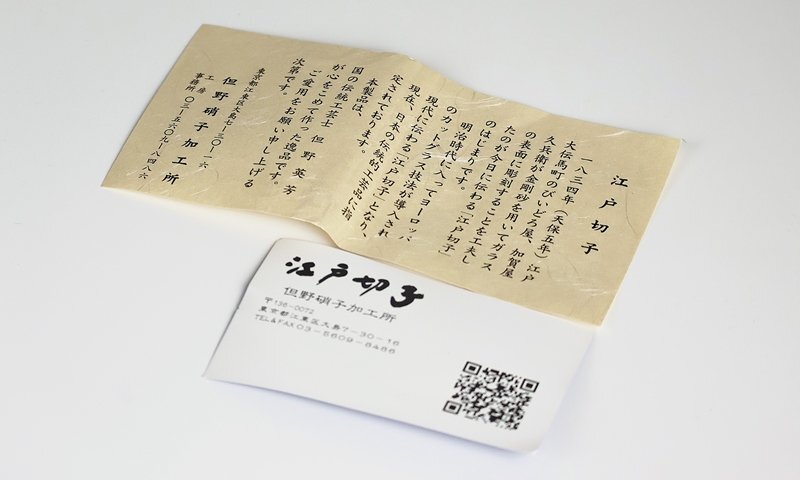 江戸切子
一八三四年（天保五年）江戸
大伝馬町のびいどろ屋、加賀屋
久兵衛が金剛砂を用いてガラス
の表面に彫刻することを工夫し
たのが今日に伝わる「江戸切子」
のはじまりです。
明治時代に入ってヨーロッパ
のカットグラス技法が導入され
現代に伝わる「江戸切子」となり、
現在、日本の伝統的工芸品に指
定されております。
本製品は、
国の伝統工芸士 但野英芳
が心をこめて作った逸品です。
ご愛用をお願い申し上げる
次第です。
東京都江東区大島七-三〇-一六
但野硝子加工所
工房
事務所 〇三-五六〇九-八四八六
江戸切子
但野硝子加工所
〒136-0072
東京都江東区大島7-30-16
TEL&FAX 03-5609-8486